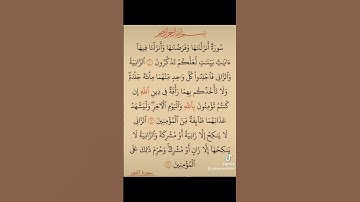 بسم الله الرحمن الرحيم
سُورَةٌ أَنزَلْنَٰهَا وَفَرَضْنَٰهَا وَأَنزَلْنَا فِيهَآ
ءَايَٰتٍۭ بَيِّنَٰتٍ لَّعَلَّكُمْ تَذَكَّرُونَ ١ ٱلزَّانِيَةُ
وَٱلزَّانِى فَٱجْلِدُوا۟ كُلَّ وَٰحِدٍ مِّنْهُمَا مِا۟ئَةَ جَلْدَةٍ
وَلَا تَأْخُذْكُم بِهِمَا رَأْفَةٌ فِى دِينِ ٱللَّهِ إِن
كُنتُمْ تُؤْمِنُونَ بِٱللَّهِ وَٱلْيَوْمِ ٱلْءَاخِرِ وَلْيَشْهَدْ
عَذَابَهُمَا طَآئِفَةٌ مِّنَ ٱلْمُؤْمِنِينَ ٢ ٱلزَّانِى
لَا يَنكِحُ إِلَّا زَانِيَةً أَوْ مُشْرِكَةً وَٱلزَّانِيَةُ لَا
يَنكِحُهَآ إِلَّا زَانٍ أَوْ مُشْرِكٌ وَحُرِّمَ ذَٰلِكَ عَلَى
ٱلْمُؤْمِنِينَ ٣
سورة النور